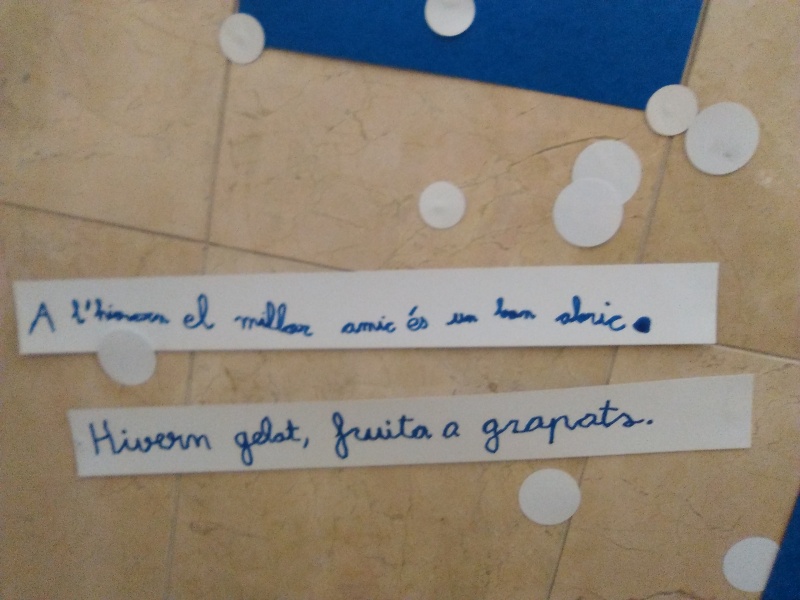 A l'hivern el millor amic és un bon abric.
Hivern gelat, fruita a grapats.